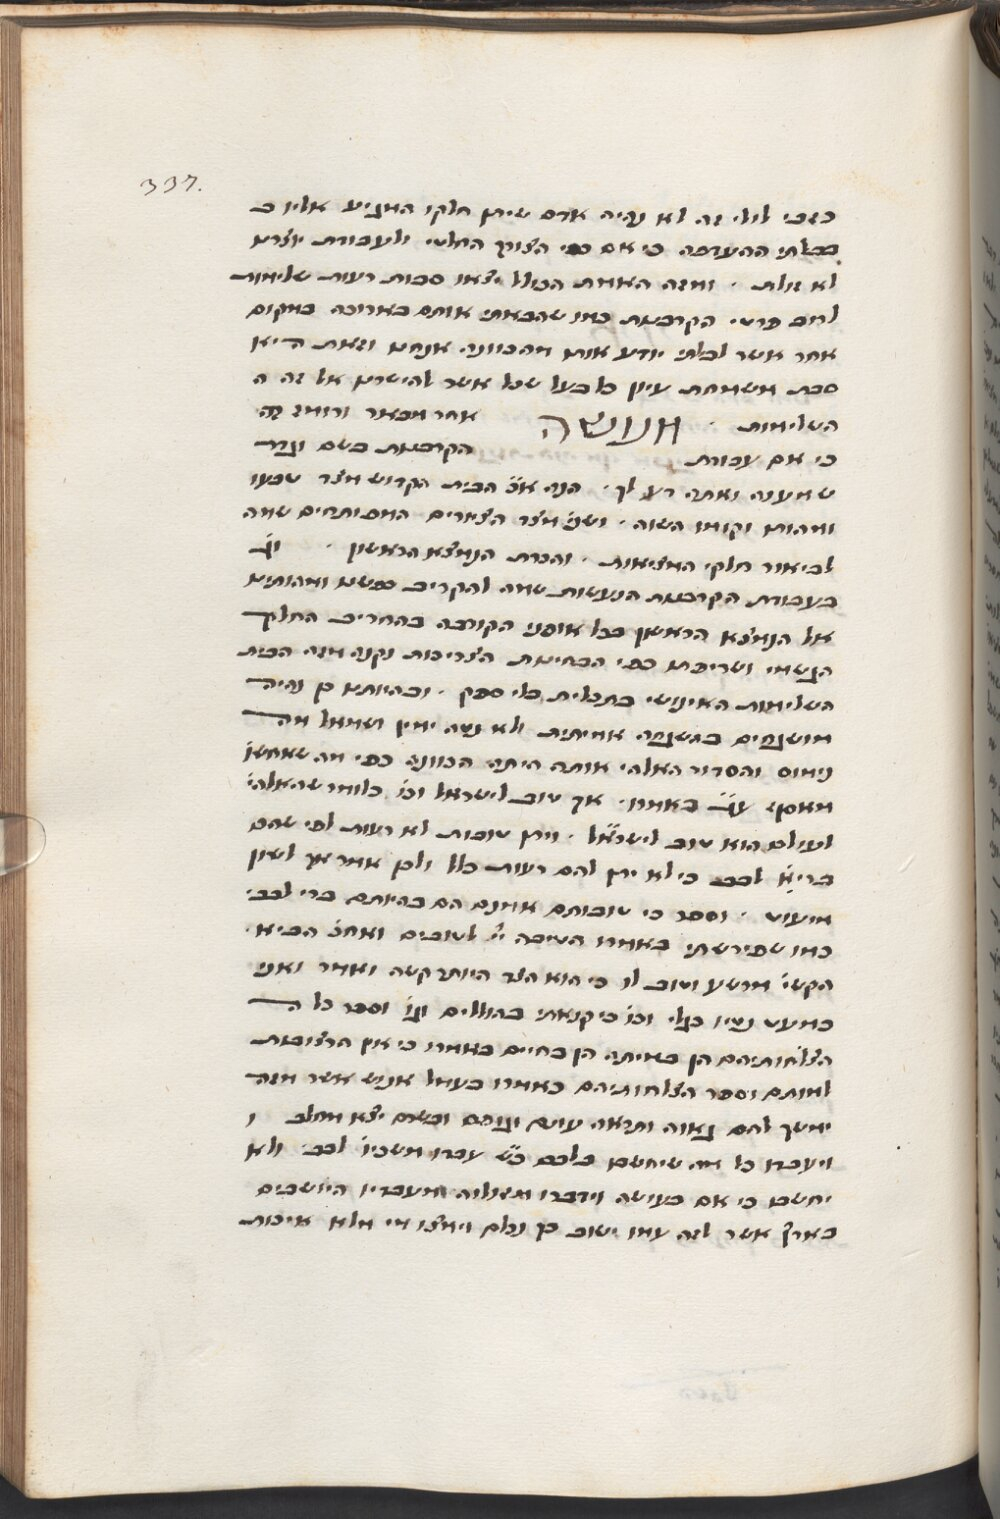 337.
כזבי לולי זה לא נהיה אדם שיתן חלקו המגיע אליו ב
בבלתי ההעדפה כי אם כפי הצורך החלטי ולעבודת יוצרם
לא זולת · ומזה האמת הכולל יצאו סבות רעות שלימות
להם פרטי הקרבנות כמו שהבאתי אותם בארוכה במקום
אחר אשר לבלתי יודע אותו מהכוונה אנחנו וזאת היא
סבת משמחת עיון כל בעל שכל אשר להישירם אל זה ה
השלימות · אנושה אחר מבאר ורומז זה
כי אם עבודת הקרבנות בשם ונדר
שמיענה ואתה רע לך · הנה אכ הבית הקדוש מצד טבעו
ומהותו וקומו השוה · ושני מצד הציורים המסותרים שמה
לביאור חלקי המציאות · והכרת הנמצא הראשון · וגו
בעבודת הקרבנות הנעשות שמה להקריב נפשם ומהותם
אל הנמצא הראשון בכל אופני הקורבה בהחריב החלק
הגשמי ושריפתו כפי הבחינות הצריכות נקנה מזה הבית
השלימות האינושי בתכלית בלי ספק · ובהיותם כן נהיה
מושגחים בהשגחה אמיתית ולא נטה ימין ושמאל מה
נימוס והסדור האלהי אותה היתה הכוונה כפי מה שאחשו
מאסף ע״ה באמרו · אך טוב לישראל וכו כלומר שהאלהי
לעולם הוא טוב לישראל · ויתן טובות לא רעות לפי שהם
ברי לבב כי לא יתן להם רעות כלל ולכן אמר אך לשון
מיעוט · וספר כי טובותם אמנם הם בהיותם ברי לבב
כמו שפירשתי באמרו הטיבה יי לטובים ואחכ הביא
הקשי מרשע וטוב לו כי הוא הצד היותר קשה ואמר ואני
כמעט נטיו רגלי וכו כי קנאתי בהוללים וגו וספר כל ה
הצלחותיהם הן במיתה הן בחיים באמרו כי אין חרצובות
למותם וספר הצלחותיהם באמרו בעמל אנוש אשר מזה
ימשך להם גאוה ותראה עושם וגופם ובשרם יצא מחלב ו
ויעברו כל מה שיחשבו בלבם כ״ש עברו משכיו לבב ולא
יחשבו כי אם בעושה וידברו מגדולה מעבדיו היושבים
בארץ אשר לזה עמו ישוב כן וכלם וימצו מי מלא איכות